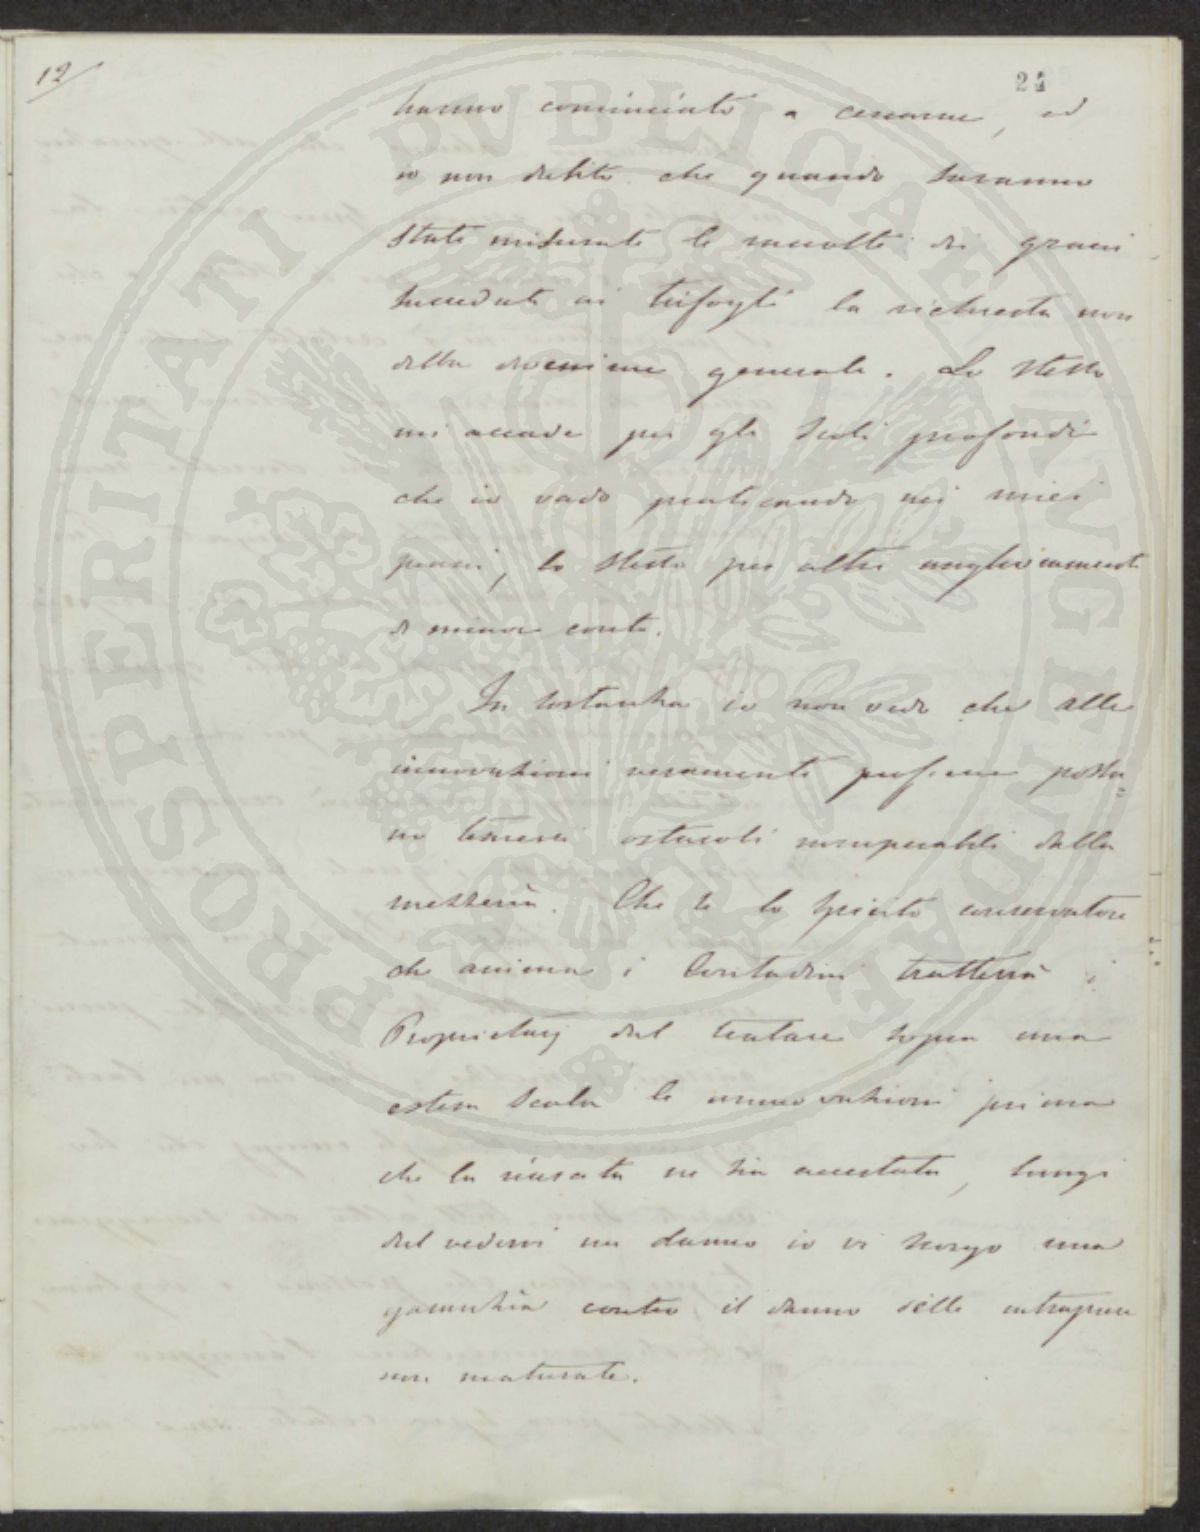 12
24
hanno cominciato a cercarne, ed
io non dubito che quando saranno
state misurate le raccolte dei grani
succedute ai trifogli la richiesta non
debba divenirne generale. Lo stesso
mi accade per gli scoli profondi
che io vado praticando nei miei
piani, lo stesso per altri miglioramenti
di minor conto.
In sostanza io non vedo che alle
innovazioni veramente proficue possa=
no temersi ostacoli insuperabili dalla
mezzeria. Che se lo spirito conservatore
che anima i Contadini tratterrà i
Proprietarj dal tentare sopra una
estesa scala le innovazioni prima
che la riuscita ne sia accertata, lungi
dal vedervi un danno io vi scorgo una
garanzia contro il danno delle intraprese
non maturate.
PROSPERITATI PVBLICAE AVGENDAE